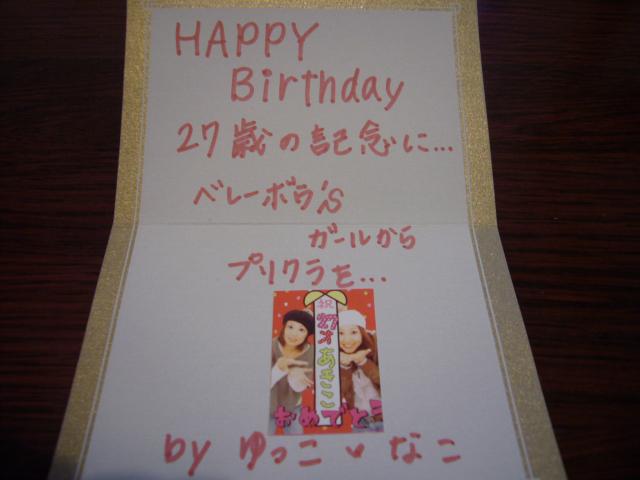 HAPPY
Birthday
27歳の記念に...
ベレーボウ'S
ガールから
プリクラを...
祝
27才
あきこ
おめでとう
by ゆっこ♥なこ